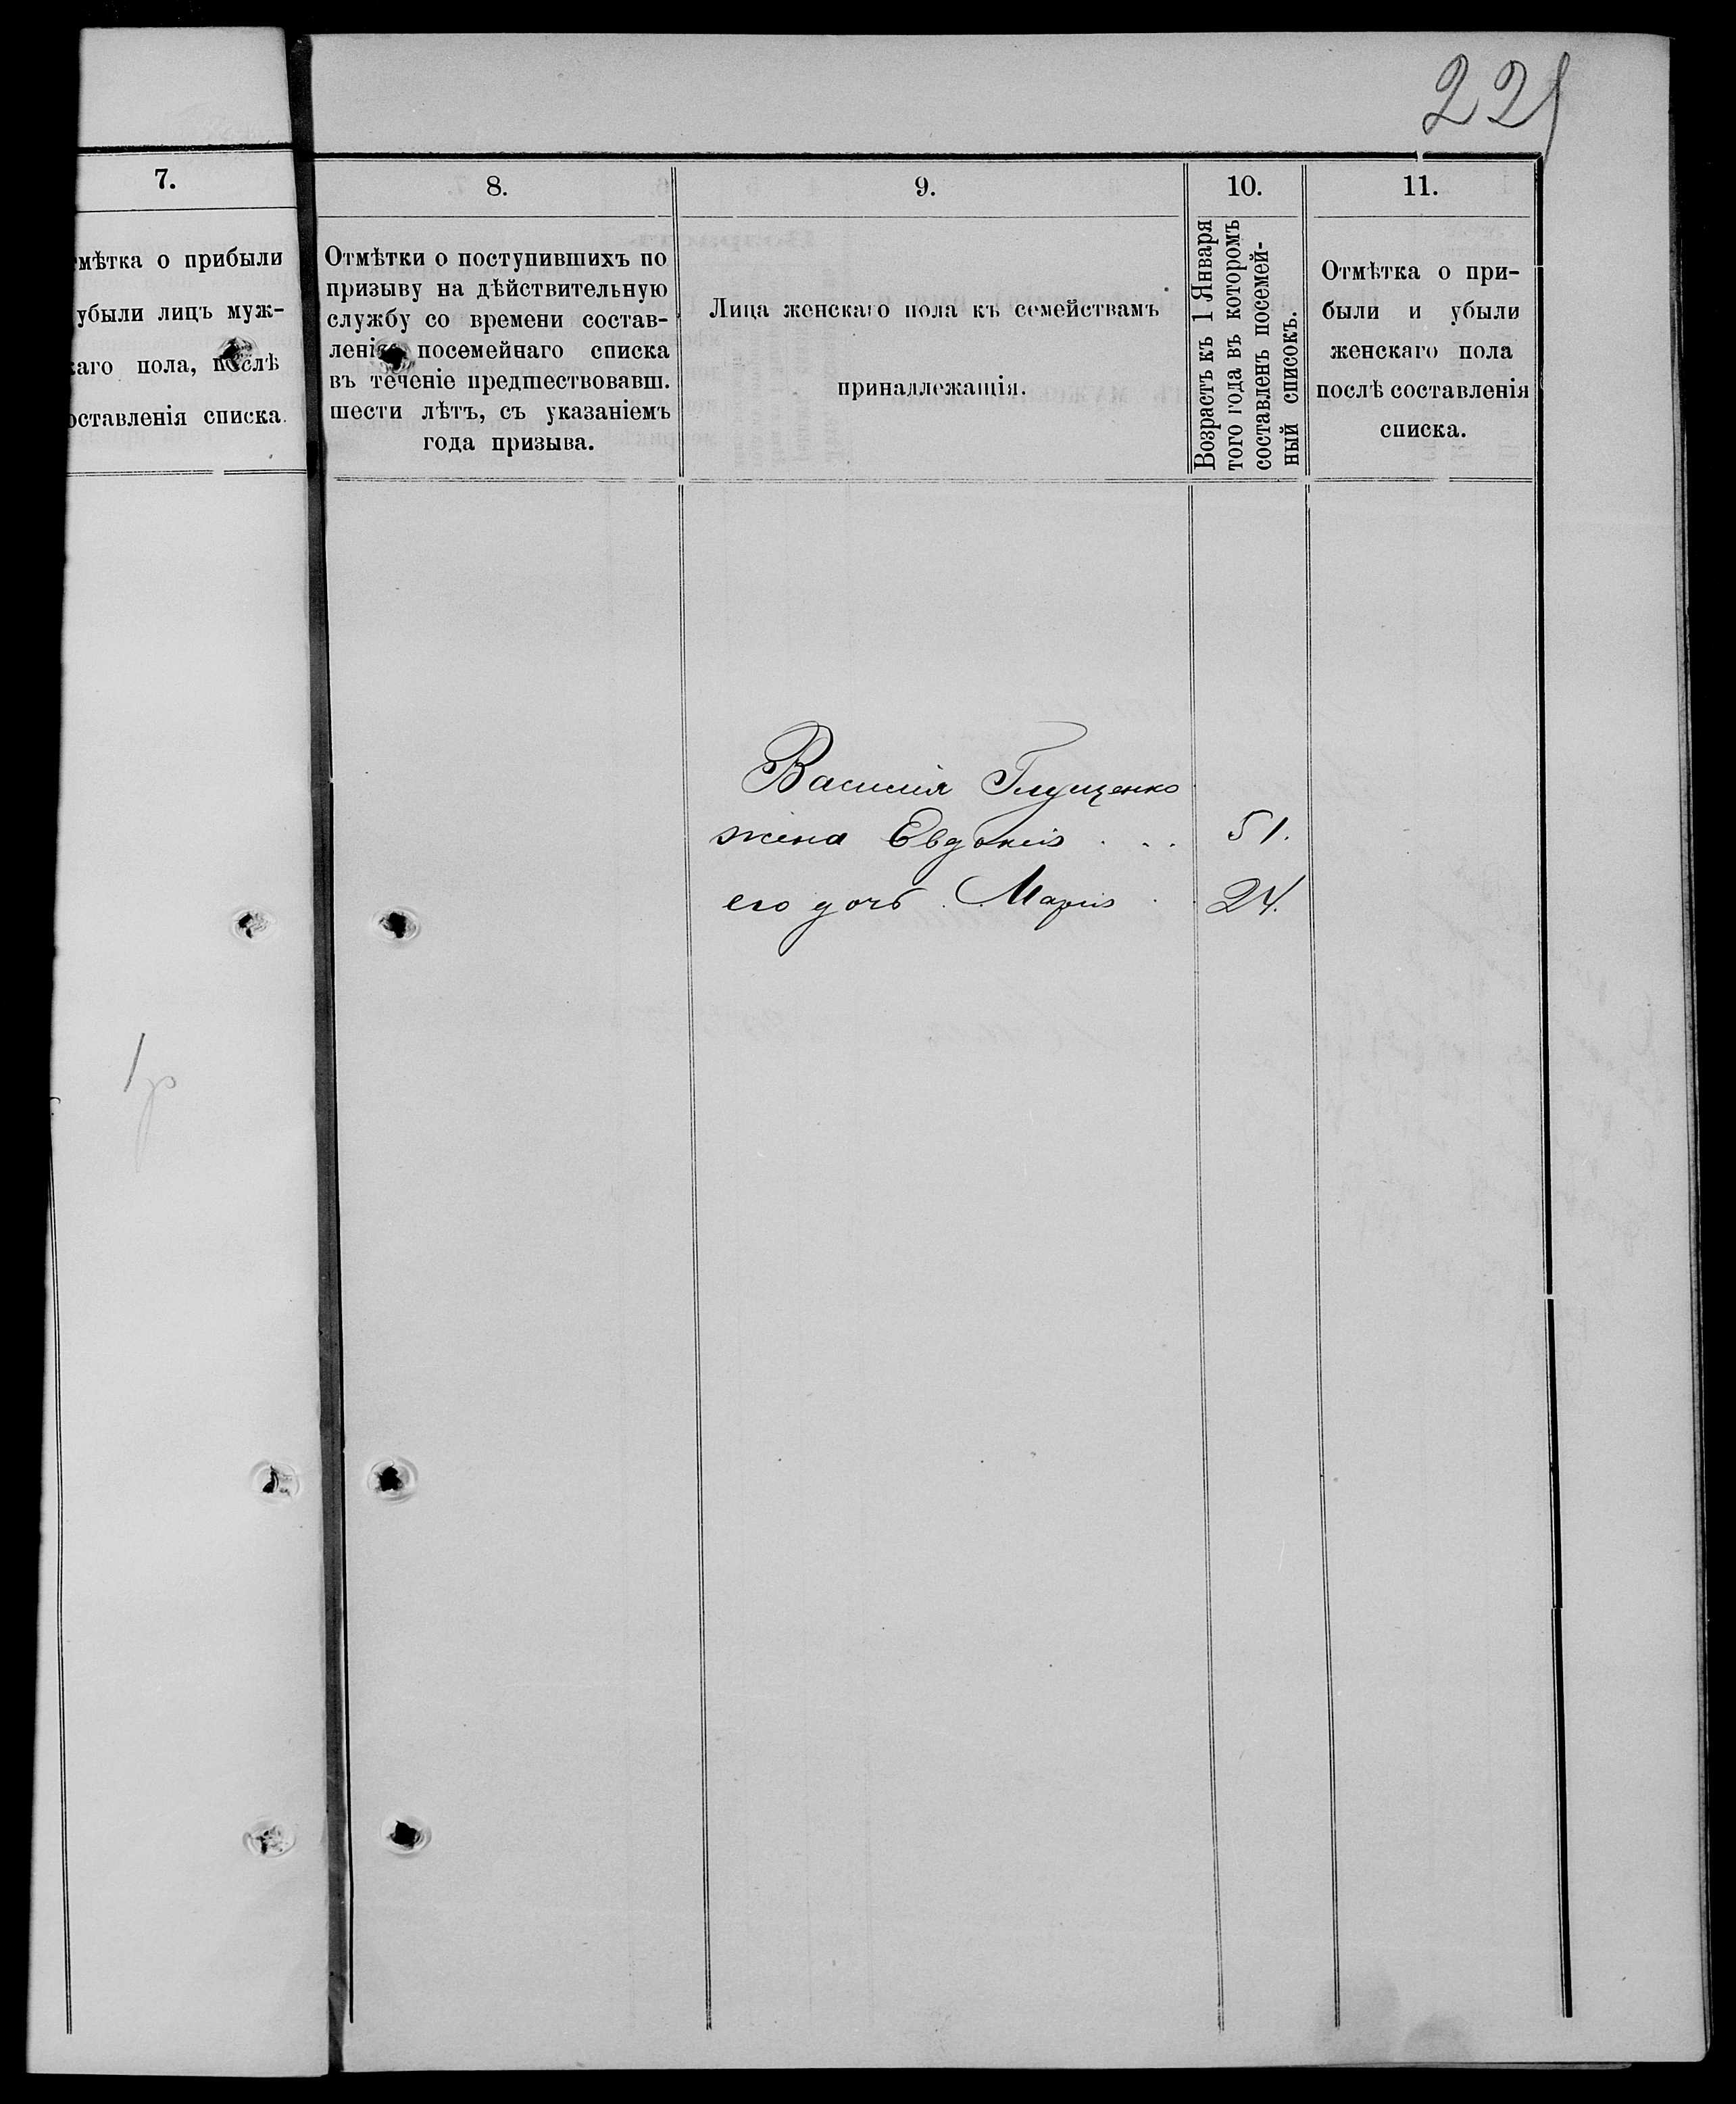 221
7.
мѣтка о прибыли
убыли лицъ муж-
каго пола, послѣ
оставленія списка.
8.
Отмѣтки о поступившихъ по
призыву на дѣйствительную
службу со времени состав-
ленія посемейнаго списка
въ теченіе предшествовавш.
шести лѣтъ, съ указаніемъ
года призыва.
9.
Лица женскаго пола къ семействамъ
принадлежащія.
10.
Возрастъ къ 1 Января
того года въ которомъ
составленъ посемей-
ный списокъ.
11.
Отмѣтка о при-
были и убыли
женскаго пола
послѣ составленія
списка.
Василія Глущенко
жена Евдокія . . . 51.
его дочь Марія . 24.